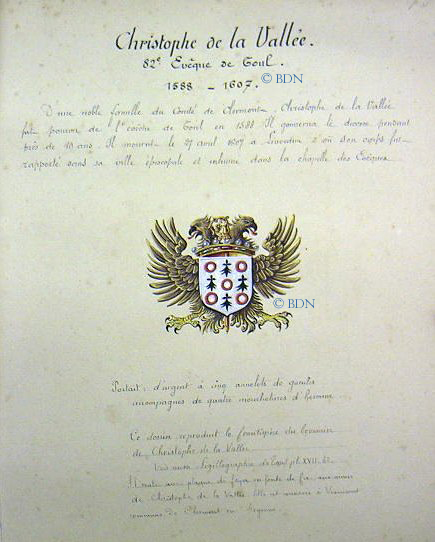 Christophe de la Vallée.
82e Evêque de Toul.
1588 - 1607.
© BDN
D'une noble famille du Comté de Clermont. Christophe de la Vallée
fut pourvu de l'évêché de Toul en 1588. Il gouverna le diocèse pendant
près de 18 ans. Il mourut le 27 avril 1607 à d'où son corps fut
rapporté dans sa ville épiscopale et inhumé dans la chapelle des Evêques
© BDN
Portait : d'argent à cinq annelets de gueules
accompagnés de quatre mouchetures d'hermine
Ce dessin reproduit le frontispice du
de Christophe de la Vallée
Sigillographie de Toul pl. XVII.
Il une plaque de foyer en fonte de fer aux armes
de Christophe de la Vallée. Elle à
de Clermont en Argonne.